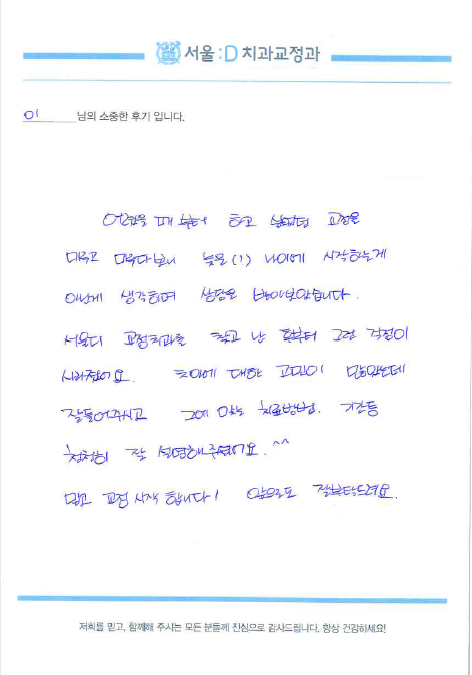 서울:D치과교정과
이 님의 소중한 후기 입니다.
어렸을 때 부터 하고 싶었던 교정을
미루고 미루다보니 늦은(!) 나이에 시작하는게
아닌가 생각하며 상담을 받아보았습니다.
서울디 교정치과를 찾고 난 후부터 그런 걱정이
사라졌어요. 치아에 대한 고민이 많았는데
잘들어주시고 그에 맞는 치료방법, 기간등
친절히 잘 설명해주셨어요.^^
믿고 교정 시작 합니다! 앞으로도 잘부탁드려요.
저희를 믿고, 함께해 주시는 모든 분들께 진심으로 감사드립니다. 항상 건강하세요!